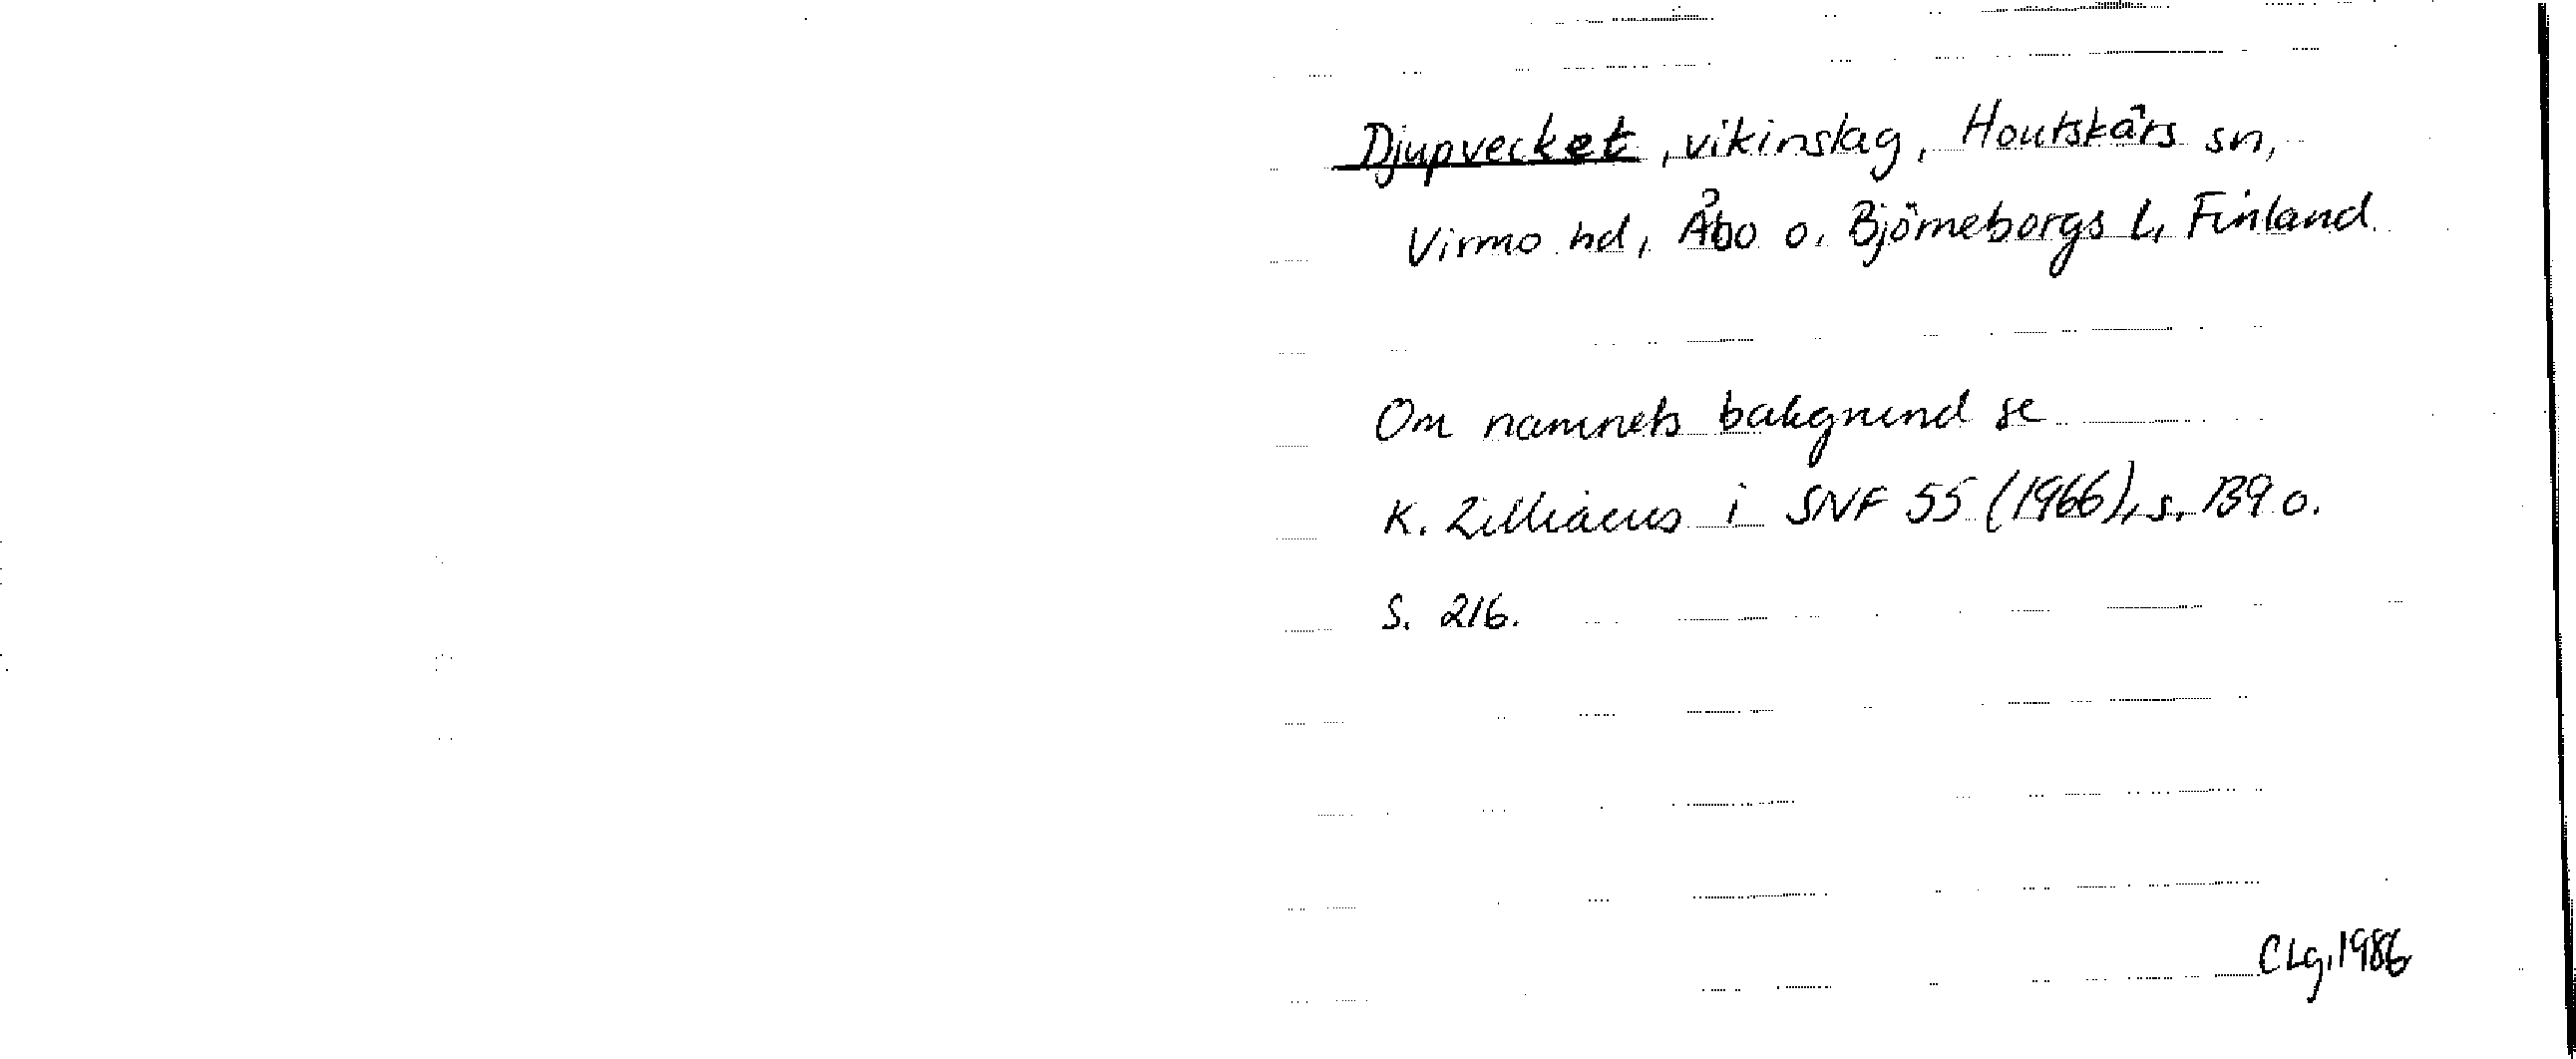 Djupvecket, vikinslag, Houtskärs sn,
Virmo hd, Åbo o. Björneborgs l, Finland.
Om namnets bakgrund se
K. Zilliacus i SNF 55 (1966), s. 139 o.
s. 216.
CLg, 1986